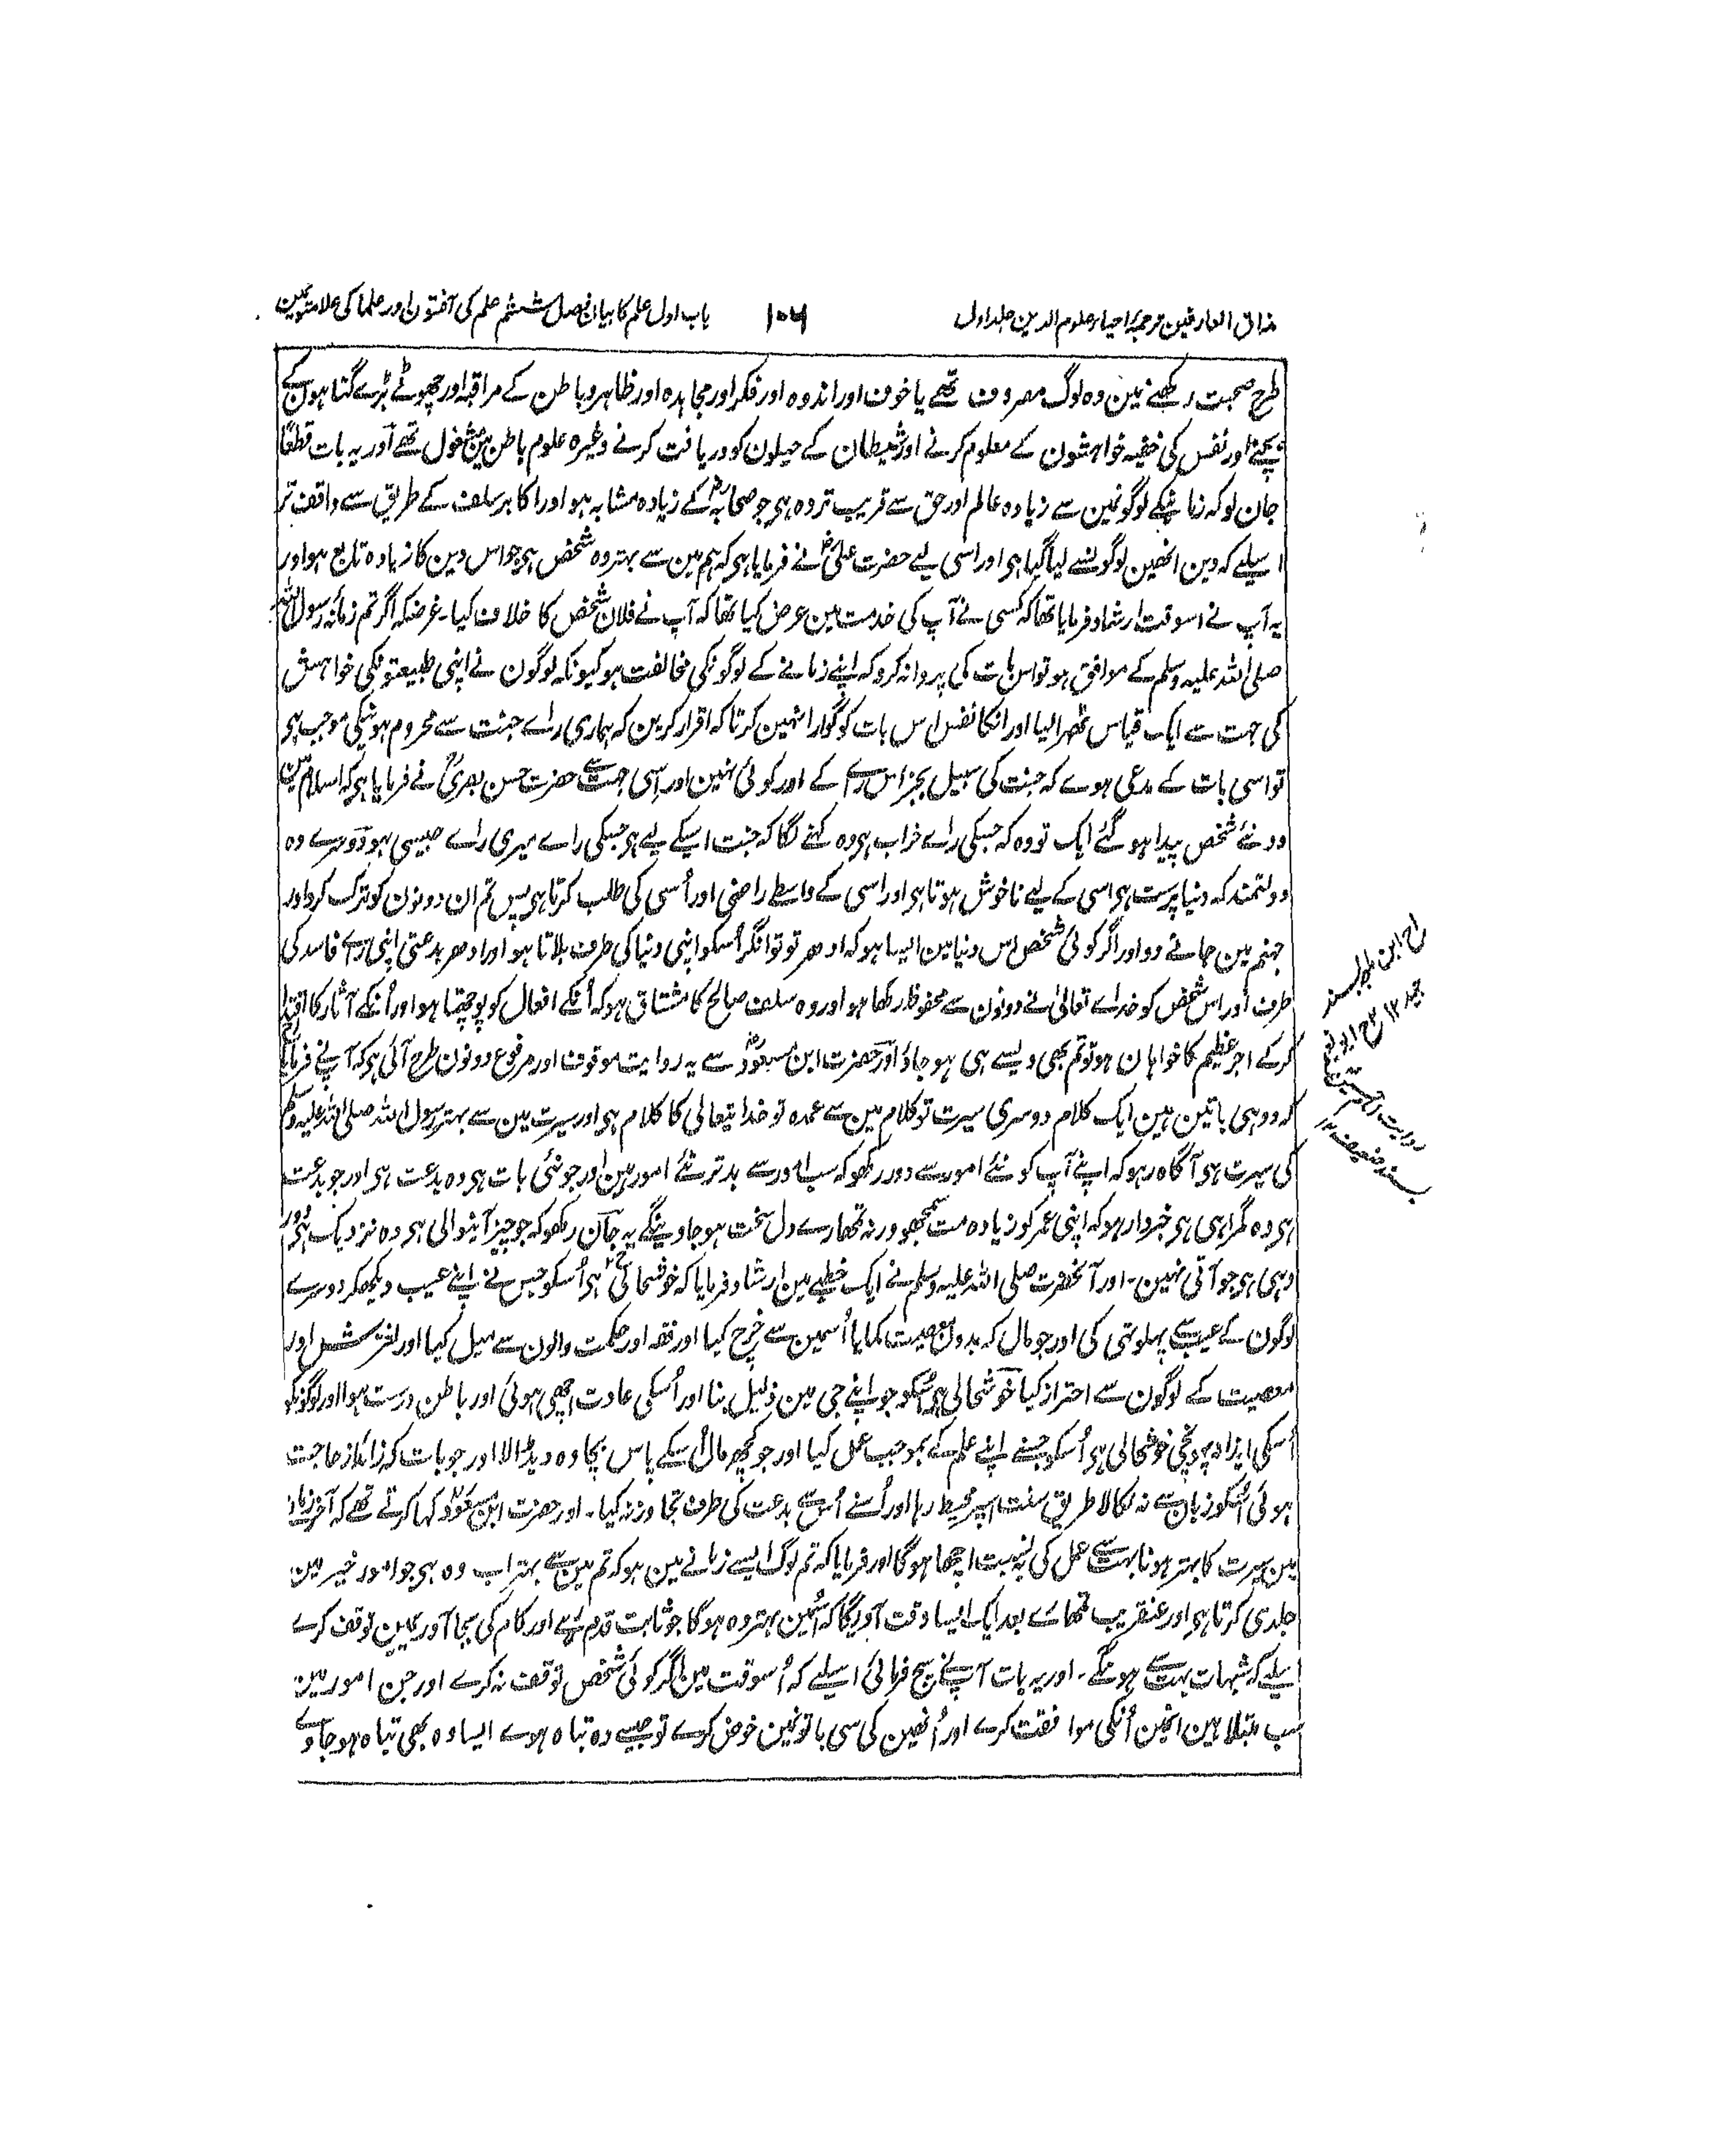 مذاق العارفین ترجمۂ احیاء علوم الدین جلد اول
۱۰۴
باب اول علم کا بیان فصل ششم علم کی آفتون اور علما کی علامتونمین
طرح صحبت رکھنے مین وہ لوگ مصروف تھے یا خوف اور اندوہ اور فکر اور مجاہدہ اور ظاہر و باطن کے مراقبہ اور چھوٹے بڑے گناہون کے
بچنے اور نفس کی خفیہ خواہشون کے معلوم کرنے اور شیطان کے حیلون کو دریافت کرنے وغیرہ علوم باطن مین مشغول تھے اور یہ بات قطعًا
جان لو کہ زمانیکے لوگونمین سے زیادہ عالم اور حق سے قریب تر وہ ہی جو صحابہؓ کے زیادہ مشابہ ہو اور اکابر سلف کے طریق سے واقف تر
اسلیے کہ دین انھین لوگونسے لیا گیا ہی اور اسی لیے حضرت علیؓ نے فرمایا ہی کہ ہم مین سے بہتر وہ شخص ہی جو اس دین کا زیادہ تابع ہو اور
یہ آپ نے اسوقت ارشاد فرمایا تھا کہ کسی نے آپ کی خدمت مین عرض کیا تھا کہ آپ نے فلان شخص کا خلاف کیا۔ غرضکہ اگر تم زمانۂ رسول اللہ
صلی اللہ علیہ وسلم کے موافق ہو تو اس بات کی پروا نہ کرو کہ اپنے زمانے کے لوگونکی مخالفت ہو کیونکہ لوگون نے اپنی طبیعتونکی خواہش
کی جہت سے ایک قیاس ٹھہرا لیا اور انکا نفس اس بات کو گوارا نہین کرتا کہ اقرار کرین کہ ہماری راے جنت سے محروم ہونیکی موجب ہی
تو اسی بات کے مدعی ہوے کہ جنت کی سبیل بجز اس راے کے اور کوئی نہین اور اسی جہت سے حضرت حسن بصریؒ نے فرمایا ہی کہ اسلام مین
دو نئے شخص پیدا ہو گئے ایک تو وہ کہ جسکی راے خراب ہی وہ کہنے لگا کہ جنت اسیکے لیے ہی جسکی راے میری راے جیسی ہو دوسرے وہ
دولتمند کہ دنیا پرست ہی اسی کے لیے ناخوش ہوتا ہی اور اسی کے واسطے راضی اور اُسی کی طلب کرتا ہی پس تم ان دونون کو ترک کرو اور
جہنم مین جانے دو اور اگر کوئی شخص اس دنیا مین ایسا ہو کہ ادھر تو توانگر اُسکو اپنی دنیا کی طرف بلاتا ہو اور ادھر بدعتی اپنی راے فاسد کی
طرف اور اس شخص کو خداے تعالیٰ نے دونون سے محفوظ رکھا ہو اور وہ سلف صالح کا مشتاق ہو کہ اُنکے افعال کو پوچھتا ہو اور اُنکے آثار کا اقتدا
کرکے اجر عظیم کا خواہان ہو تو تم بھی ویسے ہی ہو جاؤ اور حضرت ابن مسعودؓ سے یہ روایت موقوف اور مرفوع دونون طرح آئی ہی کہ آپنے فرمایا
کہ دو ہی باتین ہین ایک کلام دوسری سیرت تو کلام مین سے عمدہ تو خدا یتعالی کا کلام ہی اور سیرت مین سے بہتر رسول اللہ صلی اللہ علیہ وسلم
کی سیرت ہی آگاہ رہو کہ اپنے آپ کو نئے امور سے دور رکھو کہ سب امور سے بدتر نئے امور ہین اور جو نئی بات ہی وہ بدعت ہی اور جو بدعت
ہی وہ گمراہی ہی خبردار ہو کہ اپنی عمر کو زیادہ مت سمجھو ورنہ تمھارے دل سخت ہو جاوینگے یہ جان رکھو کہ جو چیز آنیوالی ہی وہ نزدیک ہی دور
وہی ہی جو آتی نہین۔ اور آنحضرت صلی اللہ علیہ وسلم نے ایک خطبے مین ارشاد فرمایا کہ خوشحالی ہی اُسکو جس نے اپنے عیب دیکھکر دوسرے
لوگون کے عیب سے پہلوتہی کی اور جو مال کہ بدون معصیت کمایا اُسمین سے خرچ کیا اور فقہ اور حکمت والون سے میل کیا اور لغزش اور
معصیت کے لوگون سے احتراز کیا خوشحالی ہی اُسکو جو اپنے جی مین ذلیل بنا اور اُسکی عادت اچھی ہوئی اور باطن درست ہوا اور لوگونکو
اُسکی ایذا نہ پہونچی خوشحالی ہی اُسکو جسنے اپنے علم کے بموجب عمل کیا اور جو کچھ مال اُسکے پاس بچا وہ دیڈالا اور جو بات کہ زائد از حاجت
ہوئی اُسکو زبان سے نہ نکالا طریق سنت اُسپر محیط رہا اور اُسنے اُس سے بدعت کی طرف تجاوز نہ کیا۔ اور حضرت ابن مسعودؓ کہا کرتے تھے کہ آخر زمانے
مین سیرت کا بہتر ہونا بہت سے عمل کی بہ نسبت اچھا ہوگا اور فرمایا کہ تم لوگ ایسے زمانے مین ہو کہ تم مین سے بہتر اب وہ ہی جو امور خیر مین
جلدی کرتا ہی اور عنقریب تمھارے بعد ایک ایسا وقت آویگا کہ اُسمین بہتر وہ ہوگا جو ثابت قدم رہے اور کام کی بجا آوریمین توقف کرے
اسلیے کہ شبہات بہت سے ہونگے۔ اور یہ بات آپنے سچ فرمائی اسلیے کہ اُسوقت مین اگر کوئی شخص توقف نہ کرے اور جن امور مین
سب مبتلا ہین انمین اُنکی موافقت کرے اور اُنھین کی سی باتونمین خوض کرے تو جیسے وہ تباہ ہوے ایسا وہ بھی تباہ ہو جاوے